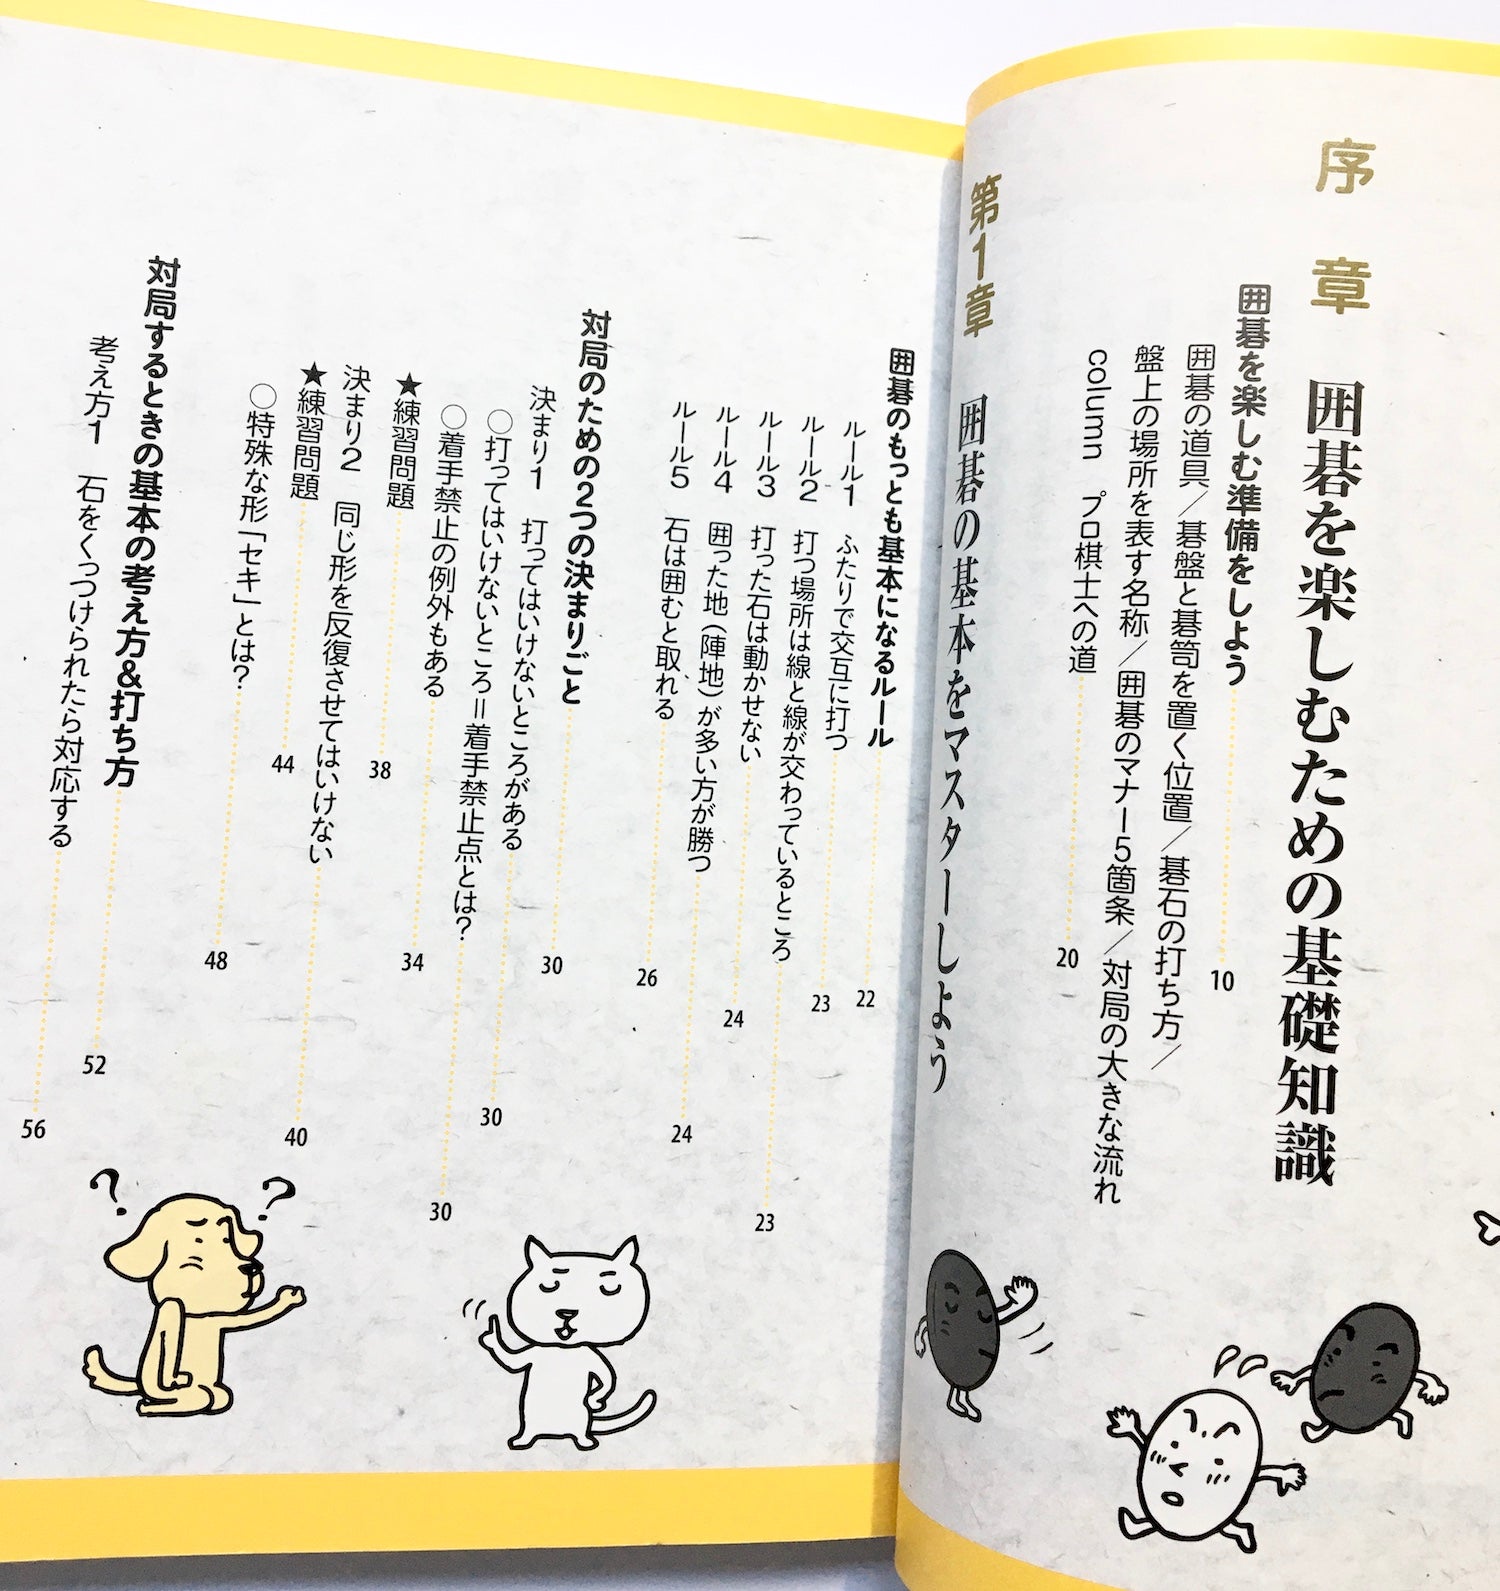 序章 囲碁を楽しむための基礎知識
囲碁を楽しむ準備をしよう 10
囲碁の道具／碁盤と碁笥を置く位置／碁石の打ち方／
盤上の場所を表す名称／囲碁のマナー5箇条／対局の大きな流れ
column プロ棋士への道 20
第1章 囲碁の基本をマスターしよう
囲碁のもっとも基本になるルール 22
ルール1 ふたりで交互に打つ 23
ルール2 打つ場所は線と線が交わっているところ 23
ルール3 打った石は動かせない 24
ルール4 囲った地（陣地）が多い方が勝つ 24
ルール5 石は囲むと取れる 26
対局のための2つの決まりごと 30
決まり1 打ってはいけないところがある 30
○打ってはいけないところ＝着手禁止点とは？ 30
○着手禁止の例外もある 34
★練習問題 38
決まり2 同じ形を反復させてはいけない 40
★練習問題 44
○特殊な形「セキ」とは？ 48
対局するときの基本の考え方&打ち方 52
考え方1 石をくっつけられたら対応する 56
? ?